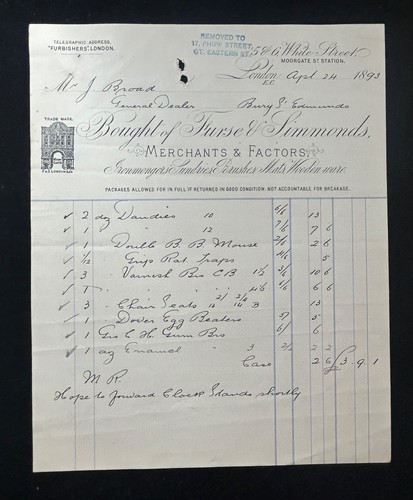 TELEGRAPHIC ADDRESS,
"FURBISHERS", LONDON.
REMOVED TO
17, PHIPP STREET,
GT. EASTERN ST.
5 & 6, White Street,
MOORGATE ST. STATION.
London, Apl 24 1893
E.C.
Mr J. Broad
General Dealer Bury St Edmunds
Bought of Furse & Simmonds,
TRADE MARK.
MERCHANTS & FACTORS,
Ironmongers, Sundries, Brushes, Mats, Wooden-ware.
PACKAGES ALLOWED FOR IN FULL IF RETURNED IN GOOD CONDITION. NOT ACCOUNTABLE FOR BREAKAGE.
2 doz Dandies 10 6/6 13
1 " 12 7/6 7 6
1 Double B. B. Mouse 2/6 2 6
1/12 Grip Rat Traps 5
3 Varnish Brs CB 1/2 3/6 10 6
1 " " " 6 6
3 Chair Seats 14 13
1 Dover Egg Beaters 5/ 5
1 Gro C. H. Gum Brs 6/ 6
1 doz Enamel " 3 2/2 2 2
Case 2 6 / 3 . 9 . 1
M R.
Hope to forward Clock Stands shortly